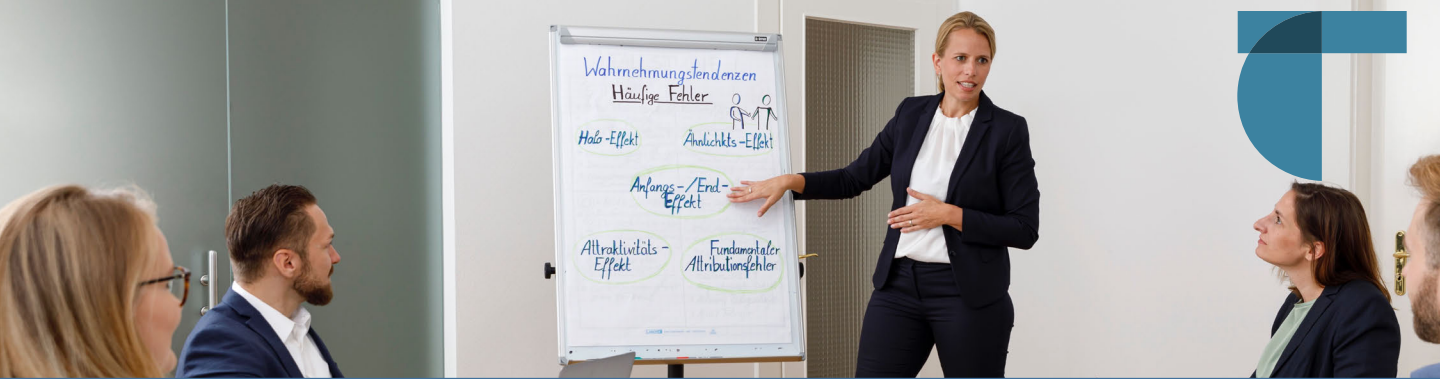 Wahrnehmungstendenzen
Häufige Fehler
Halo-Effekt
Ähnlichkts-Effekt
Anfangs-/End-
Effekt
Attraktivitäts-
Effekt
Fundamentaler
Attributionsfehler